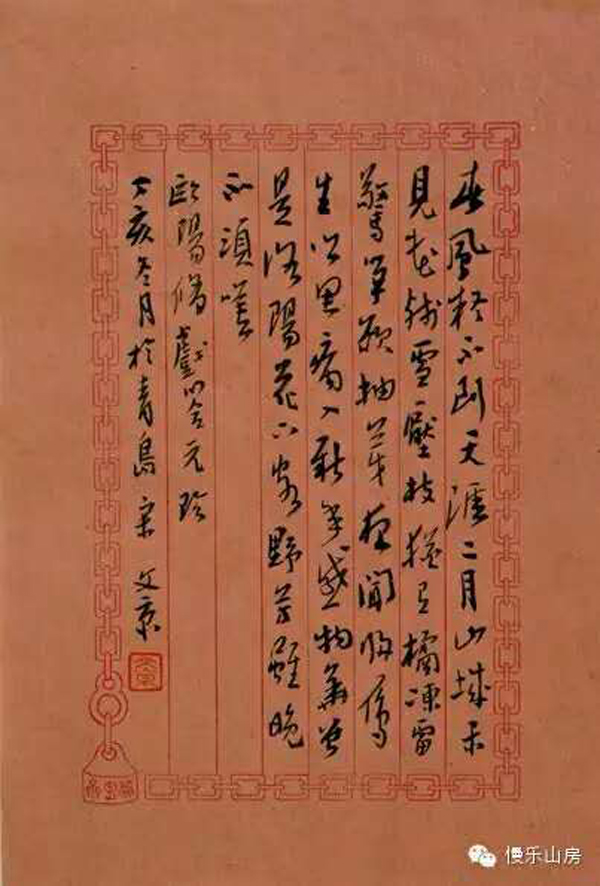 春風疑不到天涯二月山城未
見花殘雪壓枝猶有橘凍雷
驚筍欲抽芽夜聞歸雁
生鄉思病入新年感物華曾
是洛陽花下客野芳雖晚
不須嗟
歐陽修戲答元珍
丁亥冬月於青島 宋文京
慢乐山房